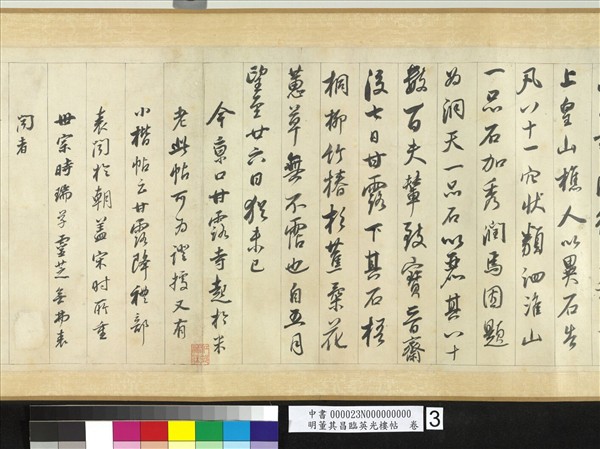 上皇山樵人以異石告
凡八十一穴狀類泗淮山
一品石加秀潤焉因題
為洞天一品石以丕其八十
數百夫輦致寶晉齋
後七日甘露下其石梧
桐柳竹椿杉蕉菜花
蕙草無不霑也自五月
望至廿六日猶未已
今京口甘露寺起於米
老此帖可為證據又有
小楷帖云甘露降禮部
表聞於朝蓋宋時所重
世宗時瑞草靈芝無弗表
聞者
中書 000023N000000000
明董其昌臨英光樓帖 卷
3